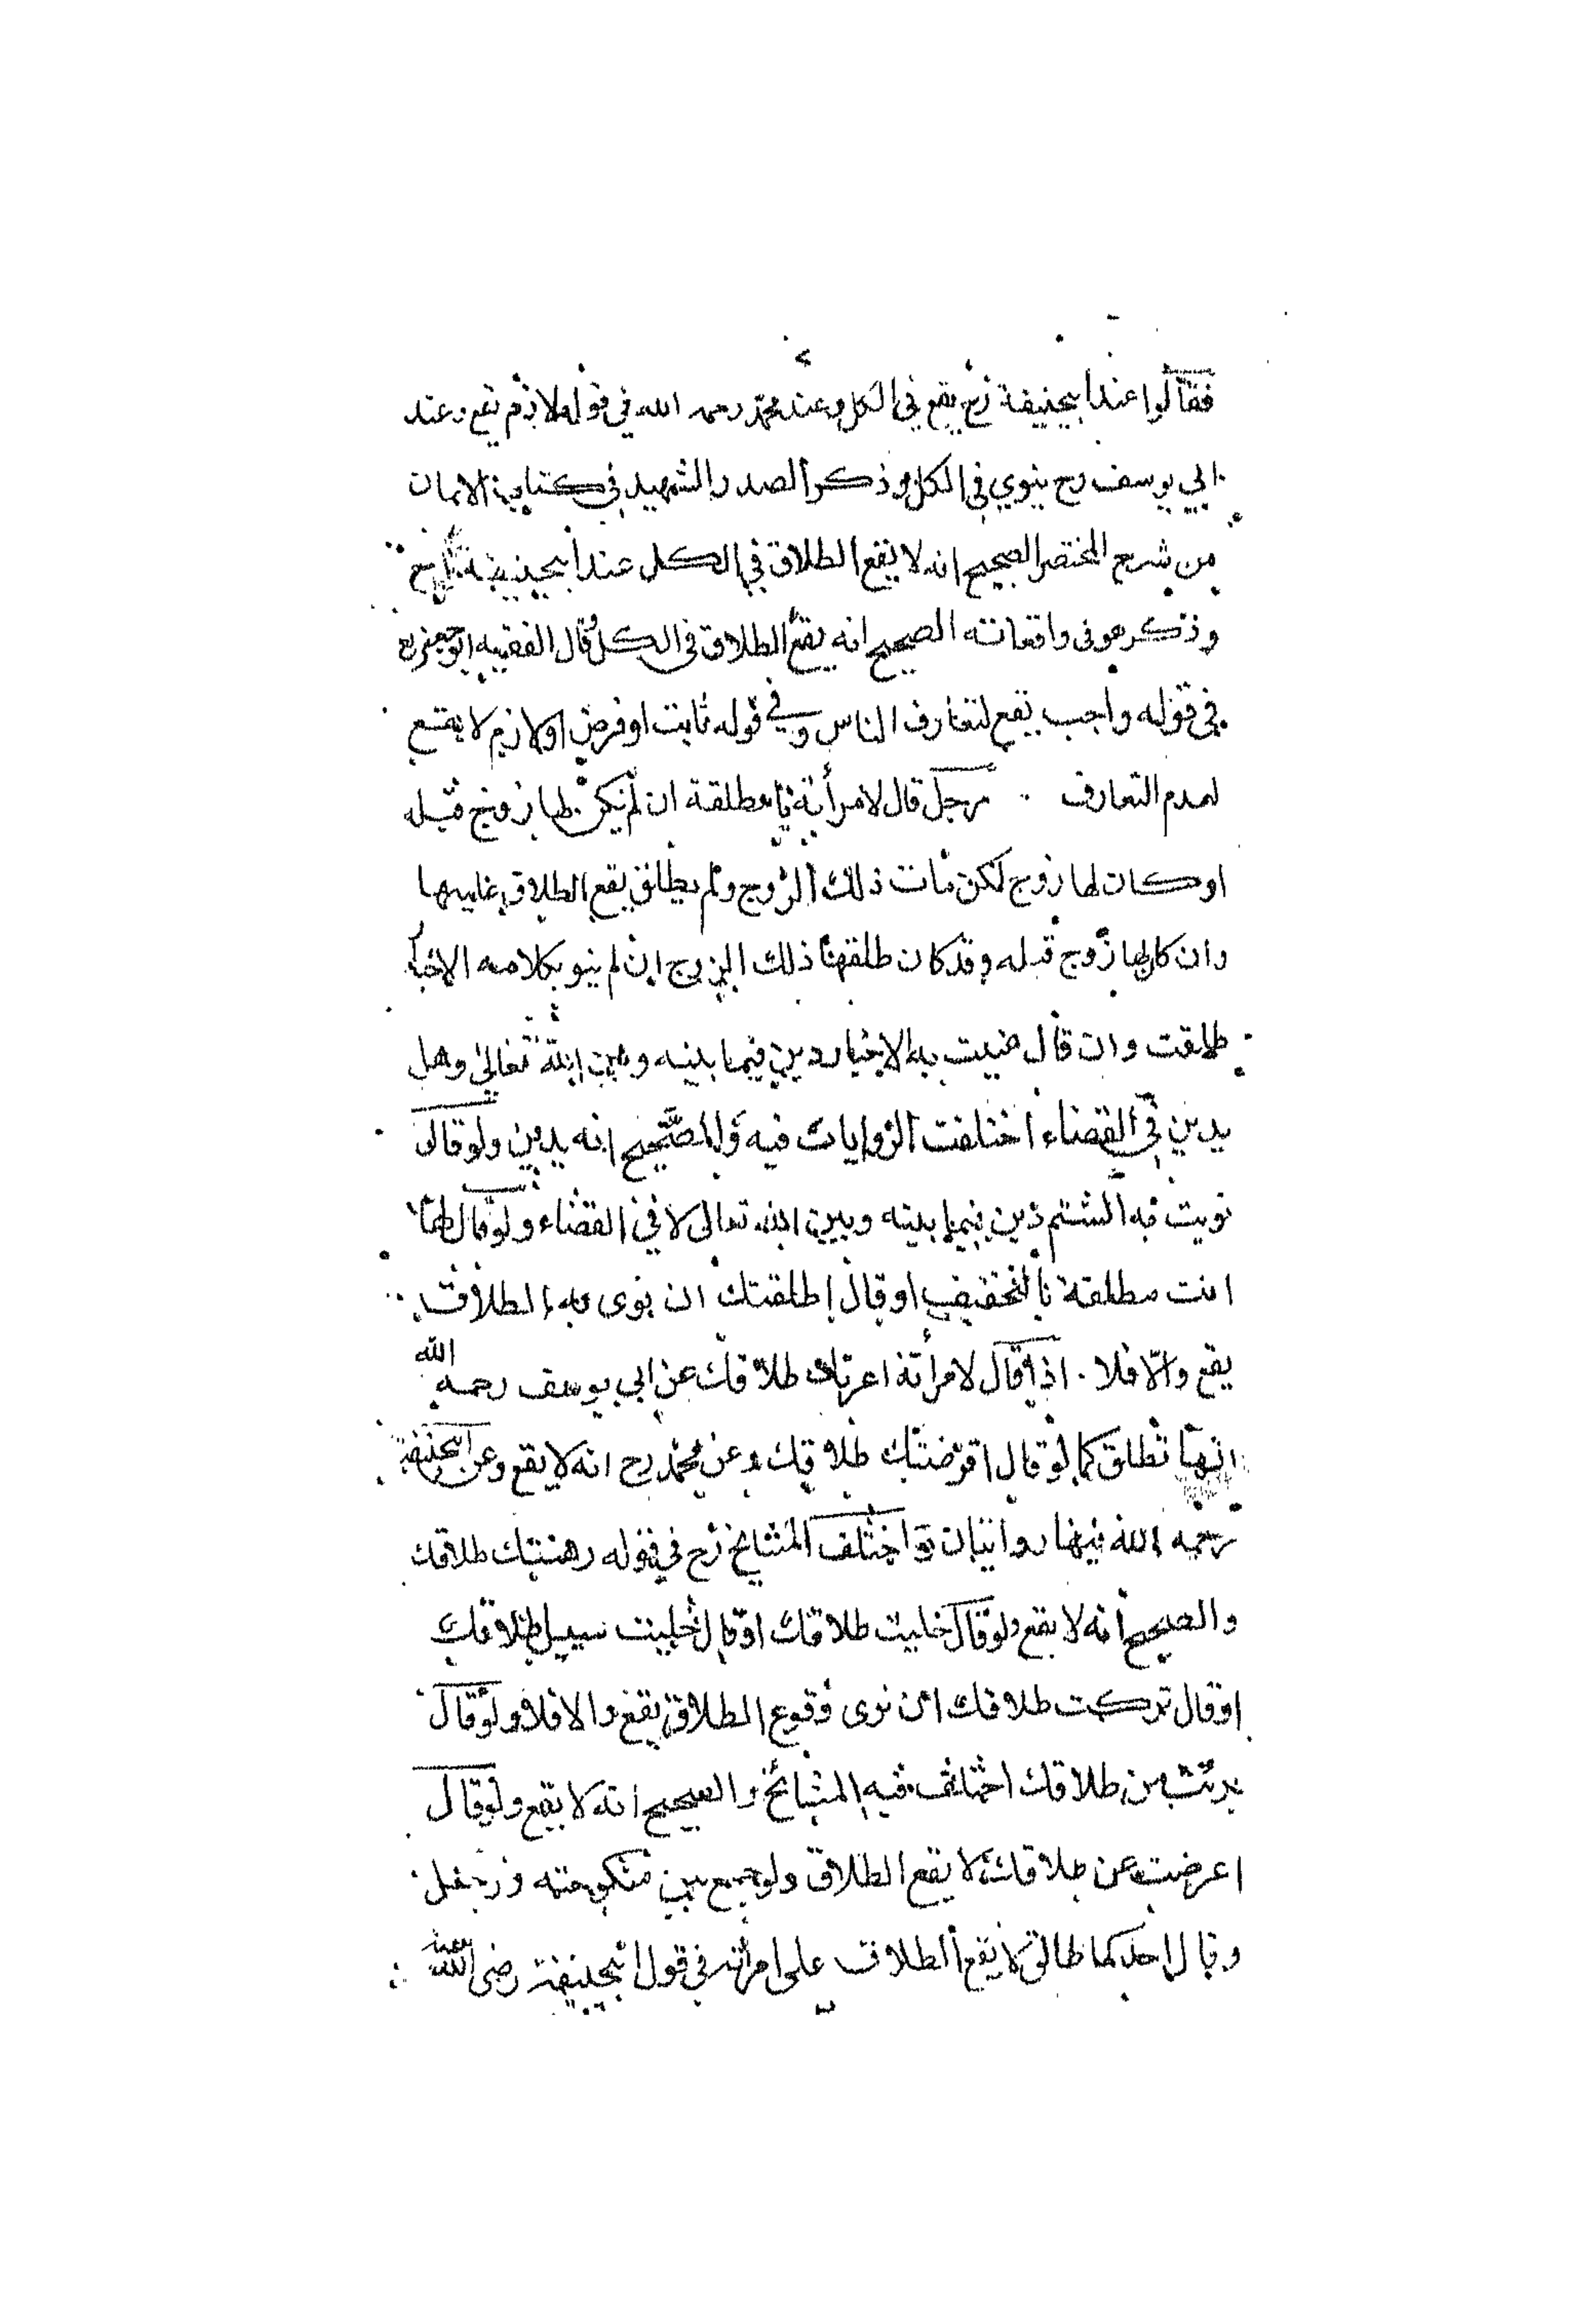 فقالوا عند ابيحنيفة رح يقع في الكل وعند محمد رحمه الله في قوله لازم يقع وعند
ابي يوسف رح ينوي في الكل وذكر الصدر الشهيد في كتاب الايمان
من شرح المختصر الصحيح انه لا يقع الطلاق في الكل عند ابيحنيفة رح
وذكر هو في واقعاته الصحيح انه يقع الطلاق في الكل قال الفقيه ابو جعفر رح
في قوله واجب يقع لتعارف الناس وفي قوله ثابت او فرض او لازم لا يقع
لعدم التعارف . رجل قال لامرأته يا مطلقة ان لم يكن لها زوج قبله
او كان لها زوج لكن مات ذلك الزوج ولم يطلق يقع الطلاق عليها
وان كان لها زوج قبله وقد كان طلقها ذلك الزوج ان لم ينو بكلامه الاخبار
طلقت وان قال عنيت به الاخبار دين فيما بينه وبين الله تعالى وهل
يدين في القضاء اختلفت الروايات فيه والصحيح انه يدين ولو قال
نويت به الشتم دين فيما بينه وبين الله تعالى لا في القضاء ولو قال لها
انت مطلقة بالتخفيف او قال اطلقتك ان نوى به الطلاق
يقع والا فلا . اذا قال لامرأته اعرتك طلاقك عن ابي يوسف رحمه الله
انها تطلق كما لو قال اقرضتك طلاقك وعن محمد رح انه لا يقع وعن ابيحنيفة
رحمه الله فيها روايتان واختلف المشايخ رح في قوله رهنتك طلاقك
والصحيح انه لا يقع ولو قال خليت طلاقك او قال خليت سبيل طلاقك
او قال تركت طلاقك ان نوى وقوع الطلاق يقع والا فلا ولو قال
برئت من طلاقك اختلف فيه المشائخ والصحيح انه لا يقع ولو قال
اعرضت عن طلاقك لا يقع الطلاق ولو جمع بين منكوحته ورجل
وقال احدكما طالق لا يقع الطلاق على امرأته في قول ابيحنيفة رضى الله عنه